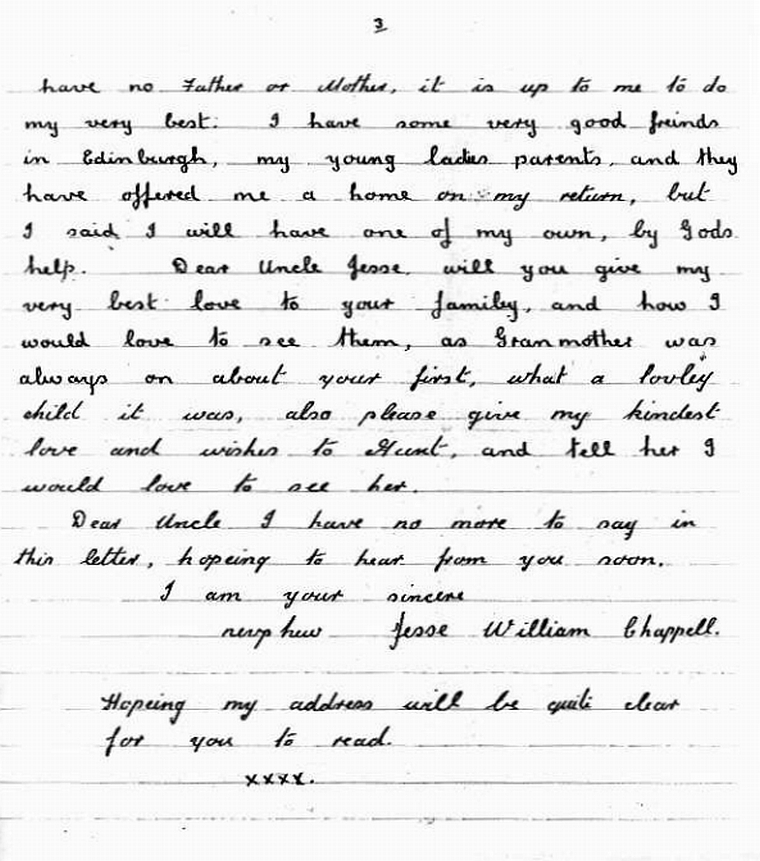 3
have no Father or Mother, it is up to me to do
my very best. I have some very good freinds
in Edinburgh, my young ladies parents, and they
have offered me a home on my return, but
I said I will have one of my own, by Gods
help. Dear Uncle Jesse, will you give my
very best love to your family, and how I
would love to see them, as Granmother was
always on about your first, what a lovley
child it was, also please give my kindest
love and wishes to Aunt, and tell her I
would love to see her.
Dear Uncle I have no more to say in
this letter, hopeing to hear from you soon.
I am your sincere
nevphew Jesse William Chappell.
Hopeing my address will be quite clear
for you to read.
xxxx.